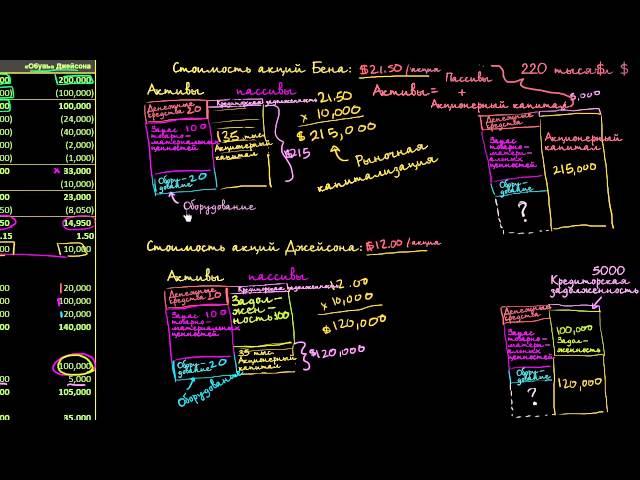 «Обувь» Джейсона
200,000
(100,000)
100,000
(24,000)
(40,000)
(2,000)
(1,000)
x 33,000
(10,000)
23,000
(8,050)
14,950
.15 1.50
10,000
20,000
100,000
20,000
140,000
100,000
5,000
105,000
35,000
Стоимость акций Бена: $21.50/акция
220 тысяч $
Активы пассивы
Активы = Пассивы + Акционерный капитал
Денежные средства 20
Кредиторская задолженность
Запас товарно-материальных ценностей 100
135 тыс.
Акционерный капитал
Оборудование 20
Оборудование
$215
21.50
x 10,000
$215,000
Рыночная капитализация
5,000
Денежные средства
Запас товарно-материальных ценностей
Оборудование
?
Акционерный капитал
215,000
Стоимость акций Джейсона: $12.00/акция
Активы пассивы
Денежные средства 20
Кредиторская задолженность
Запас товарно-материальных ценностей 100
Задолженность 100
35 тыс.
Акционерный капитал
Оборудование 20
Оборудование
$120,000
12.00
x 10,000
$120,000
5000
Кредиторская задолженность
Денежные средства
Запас товарно-материальных ценностей
Оборудование
?
100,000
Задолженность
120,000